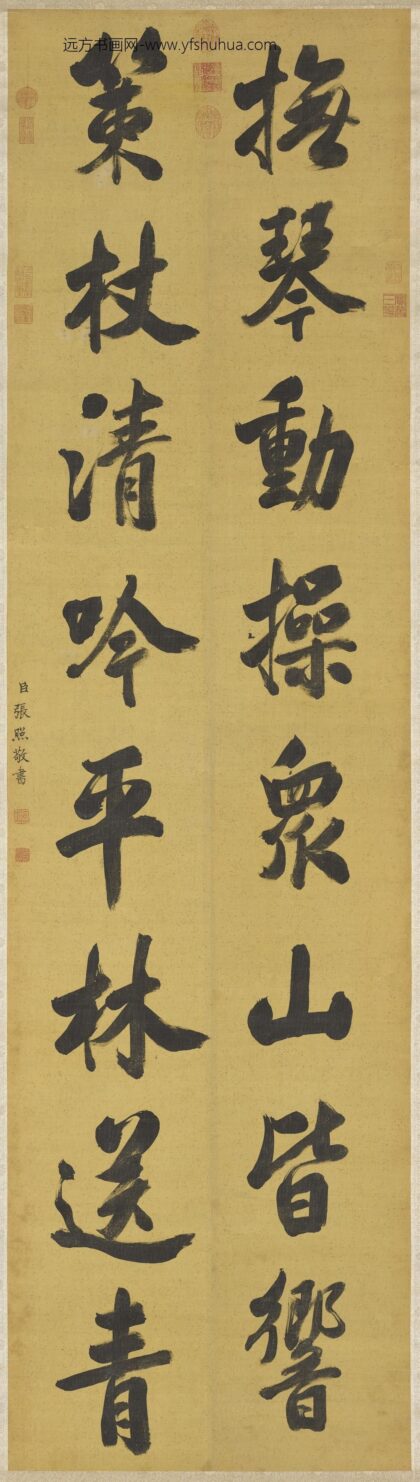 远方书画网-www.yfshuhua.com
撫琴動操衆山皆響
策杖清吟平林送青
臣張照敬書